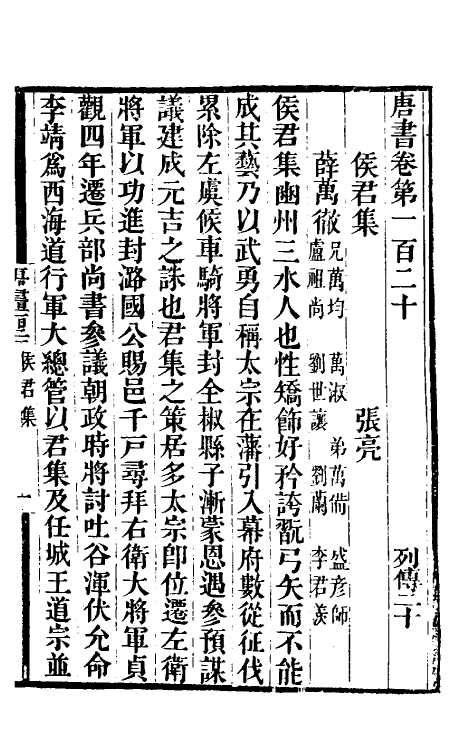 唐書卷第一百二十 列傳二十
侯君集 張亮
薛萬徹 兄萬均 萬淑 弟萬備 盛彦師
盧祖尚 劉世讓 劉蘭 李君羨
侯君集豳州三水人也性矯飾好矜誇翫弓矢而不能
成其藝乃以武勇自稱太宗在藩引入幕府數從征伐
累除左虞候車騎將軍封全椒縣子漸蒙恩遇參預謀
議建成元吉之誅也君集之策居多太宗卽位遷左衛
將軍以功進封潞國公賜邑千戸尋拜右衛大將軍貞
觀四年遷兵部尚書參議朝政時將討吐谷渾伏允命
李靖爲西海道行軍大總管以君集及任城王道宗並
侯君集 一